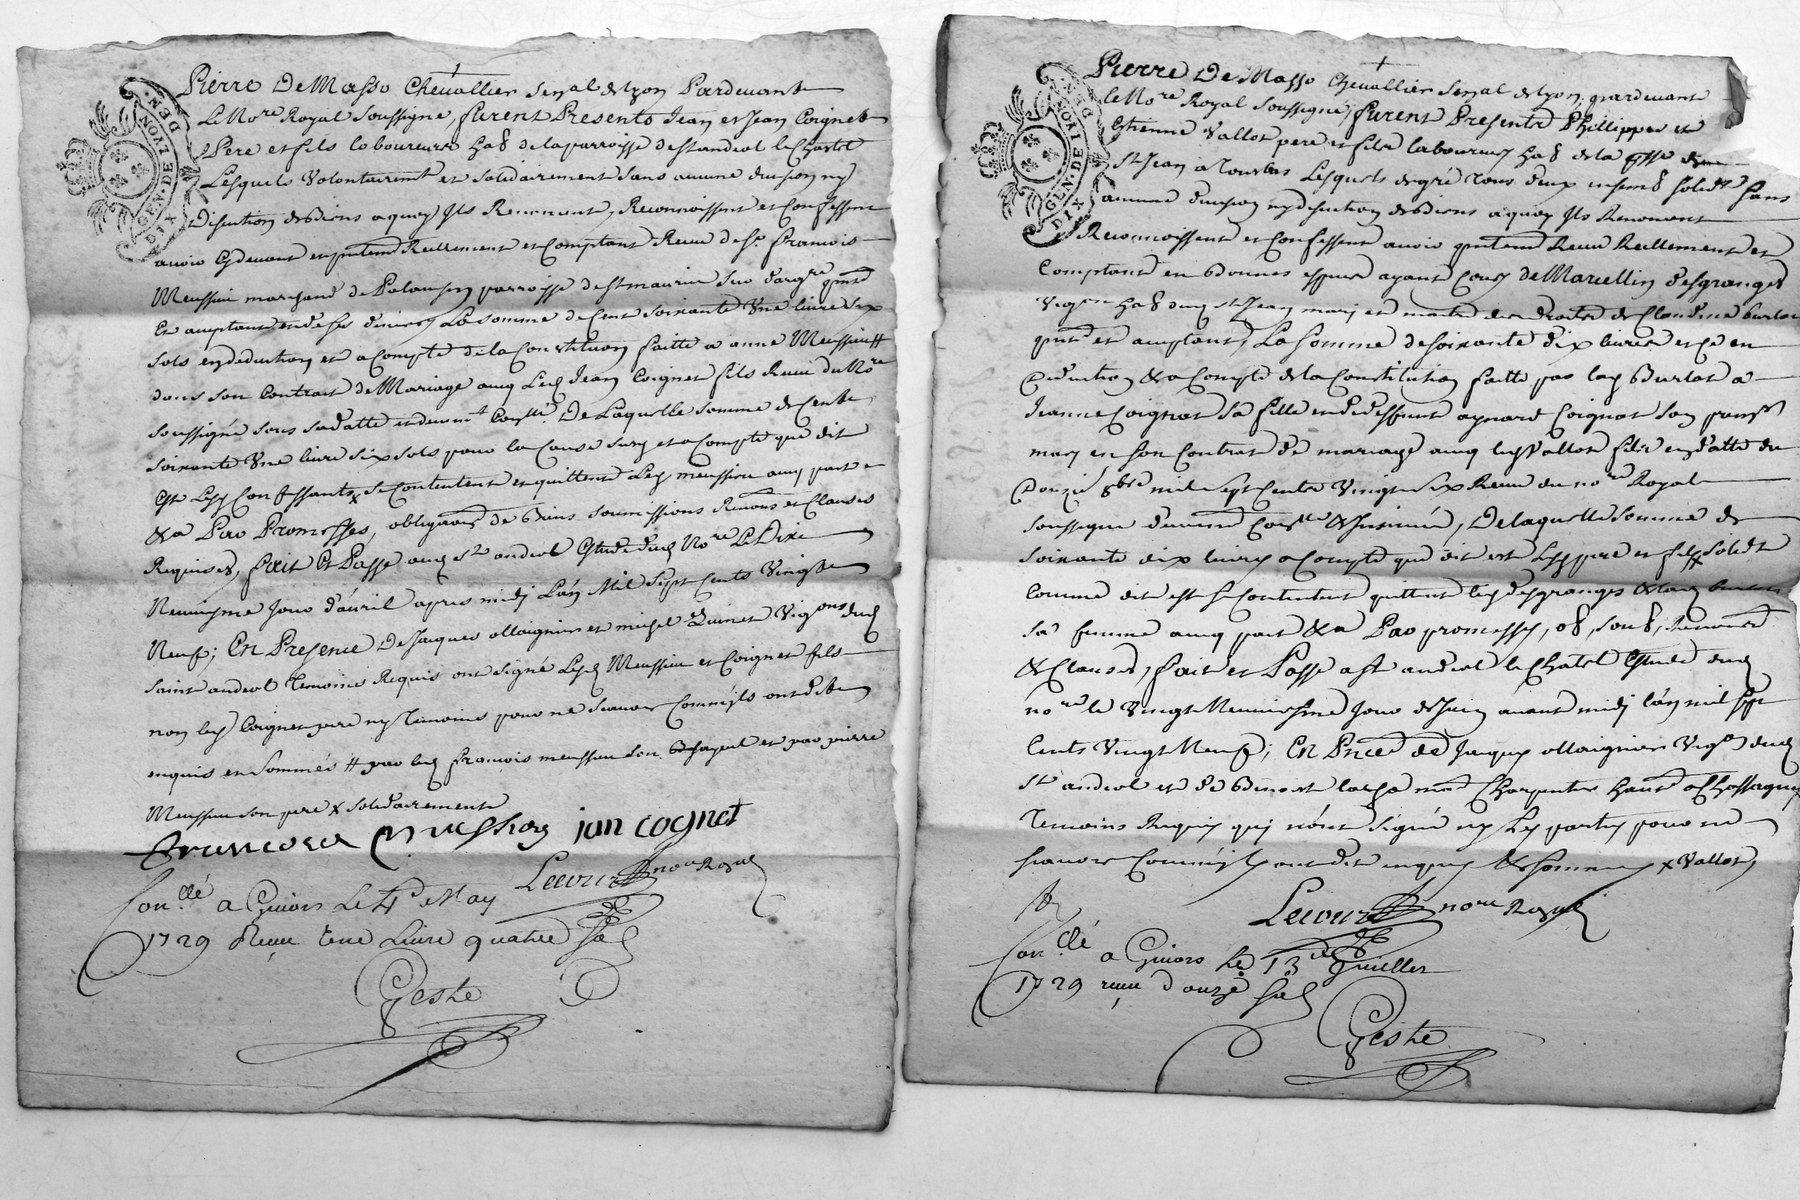 GEN. DE LYON. DIX DEN.
Pierre De Masso Chevallier Senal de Lyon Pardevant
Le Nore Royal Soussigné, furent Presents Jean et Jean Coignet
Pere et fils laboureurs de la parroisse de St andeol le Chastel
Lesquels Volontairemt et solidairement sans aucune division ny
discution de biens a quoy Ils Renoncent, Reconnoissent et Confessent
avoir Cydevant et Reellement et Comptant Receu de Sr francois
Meussieu marchand de parroisse de St maurice sur dargre
Et comptant la somme de Cent soixante Une livre six
sols en deduction et a Compte de la Constitution faitte a anne Meussieu #
dans son Contrat de Mariage avec Led Jean Coignet fils Receu du Nore
soussigné sous sa datte De Laquelle somme de Cent
soixante Une livre six sols pour la Cause susd et a Compte que dit
est Lesd Confessants x se Contentent et quittent Led meussieu avec pact
&a Par Promesses, obligaons de biens soumissions Renons et Clauses
Requises, fait Et Passé aud St andeol Estude dud Nore Le Dix
Neuvieme Jour d'avril apres midj L'an Mil Sept Cents Vingt
Neuf; En Presence De Jacques ollaignier et michel Vigons dud
Saint andeol temoins Requis ont signé Lesd Meussieu et Coignet fils
non led Coignet pere ny temoins pour ne scavoir Comm'ils ont dit
enquis et sommés # par led francois meussieu son et par pierre
Meussieu son pere x solidairement
jan cognet
Lecourt nore Royal
Con.llé a Givors Le 4e May
1729 Receu Une Livre quatre sols
Geste
GEN. DE LYON. DIX DEN.
Pierre De Masso Chevallier Senal de Lyon, pardevant
le Nore Royal Soussigné, furent Presents Phillippes et
Etienne Vallot pere et fils laboureurs de la
St Jean a Touslas Lesquels de gré tous deux sans
aucune division ny discution de biens a quoy Ils Renoncent
Reconnoissent et Confessent avoir Receu Reellement et
Comptant en bonnes especes ayant Cours de Marcellin desgranges
Vigon dud St Jean mary et maitre des droits de Claudine burlat
et comptant, La somme de soixante dix livres et Ce en
deduction & a Compte de la Constitution faitte par lad Burlat a
Jeanne Coignat sa fille aynard Coignat son
mary en son Contrat de mariage avec led Vallot fils en datte du
8bre mil sept Cents Vingt six Receu du nore Royal
soussigné, De laquelle somme de
soixante dix livres a Compte que dit est Lesd pere et fils x
Comme dit est se Contentent quittent led desgranges & lad
sa femme avec pact &a Par promesses,
& Clauses, fait et Passé a St andeol le Chatel Estude dud
nore le Vingt Neuvieme Jour de Juin avant midj l'an mil sept
Cents Vingt Neuf; En de Jacques ollaignier Vigon dud
St andeol et de Benoist Charpentier a Chassagny
temoins Requis qui n'ont signé ny Les partyes pour ne
scavoir Comm'ils ont dit enquis & sommés x Vallot,
Lecourt nore Royal
Con.llé a Givors Le 13 Jeuillet
1729 receu douze sols
Geste